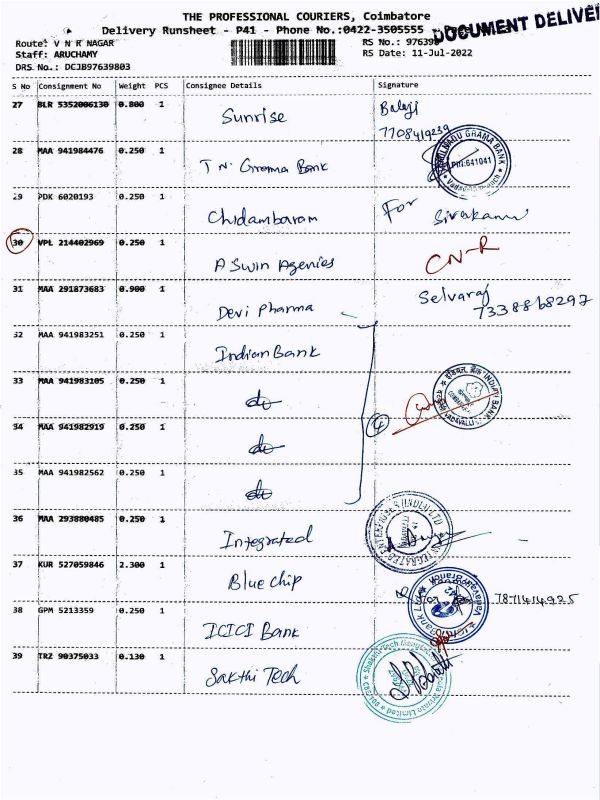 THE PROFESSIONAL COURIERS, Coimbatore
DOCUMENT DELIVE
Delivery Runsheet - P41 - Phone No.:0422-3505555
Route: V N R NAGAR
RS No.: 97639
Staff: ARUCHAMY
RS Date: 11-Jul-2022
DRS No.: DCJB97639803
S No Consignment No Weight PCS Consignee Details Signature
27 BLR 5352006130 0.800 1 Sunrise Balaji
7708419239
28 MAA 941984476 0.250 1 T N. Grama Bank
TAMILNADU GRAMA BANK
PIN:641041
29 PDK 6020193 0.250 1 Chidambaram For Sivakami
30 VPL 214402969 0.250 1 ASwin Agenies CN-R
31 MAA 291873683 0.900 1 Devi Pharma Selvaraj
7338868297
32 MAA 941983251 0.250 1 Indian Bank
33 MAA 941983105 0.250 1 do
INDIAN BANK
VADAVALLI
34 MAA 941982919 0.250 1 do
4
35 MAA 941982562 0.250 1 do
36 MAA 293880485 0.250 1 Integrated
INTEGRATED ENTERPRISES (INDIA) LTD
37 KUR 527059846 2.300 1 Blue chip
7871414925
38 GPM 5213359 0.250 1 ICICI Bank
Bank Ltd
39 TRZ 90375033 0.130 1 Sakthi Tech
Private Limited